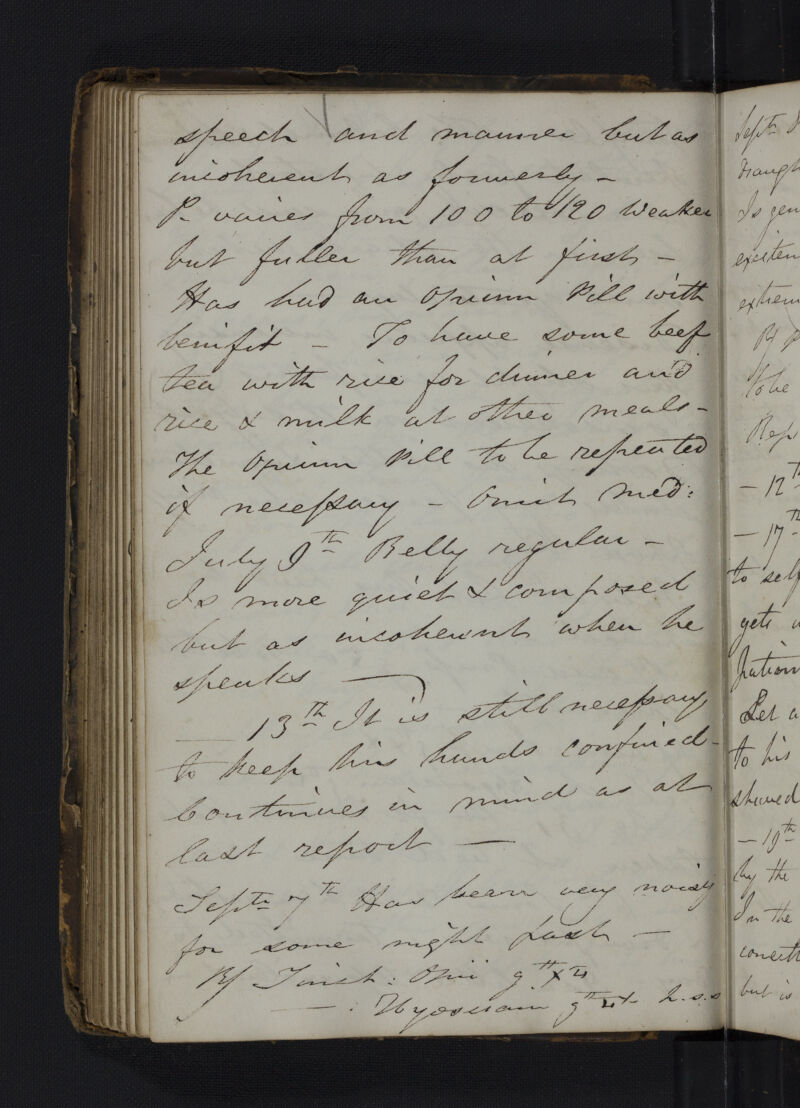 speech and manner but as
incoherent as formerly -
P. varies from 100 to 120 weaker
but fuller than at first -
Has had an Opium Pill with
benifit - To have some beef
tea with rice for dinner and
rice & milk at other meals -
The Opium Pill to be repeated
if necessary - Omit Med:
July 9th Belly regular -
Is more quiet & composed
but as incoherent when he
speaks —
— 13th It is still necessary
to keep his hands confined -
Continues in mind as at
last report —
Septr 7th Has been very noisy
for some night past —
Rx Tinct: Opii
— : Hyosciam
Septr
draugh
Is gen
exciten
extrem
to be
Rep
- 12th
- 17th
to self
gets
Let a
to his
shaved
- 19th
by the
In the
but is